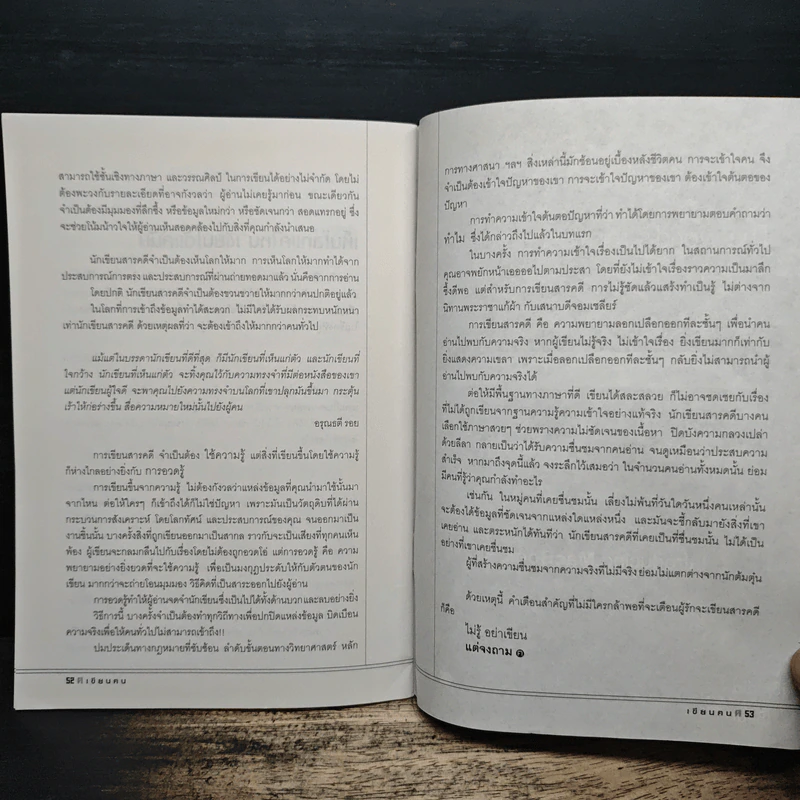 สามารถใช้ชั้นเชิงทางภาษา และวรรณศิลป์ ในการเขียนได้อย่างไม่จำกัด โดยไม่
ต้องพะวงกับรายละเอียดที่อาจกังวลว่า ผู้อ่านไม่เคยรู้มาก่อน ขณะเดียวกัน
จำเป็นต้องมีมุมมองที่ลึกซึ้ง หรือข้อมูลใหม่กว่า หรือชัดเจนกว่า สอดแทรกอยู่ ซึ่ง
จะช่วยโน้มน้าวใจให้ผู้อ่านเห็นสอดคล้องไปกับสิ่งที่คุณกำลังนำเสนอ
นักเขียนสารคดีจำเป็นต้องเห็นโลกให้มาก การเห็นโลกให้มากทำได้จาก
ประสบการณ์การตรง และประสบการณ์ที่ผ่านถ่ายทอดมาแล้ว นั่นคือจากการอ่าน
โดยปกติ นักเขียนสารคดีจำเป็นต้องขวนขวายให้มากกว่าคนปกติอยู่แล้ว
ในโลกที่การเข้าถึงข้อมูลทำได้สะดวก ไม่มีใครได้รับผลกระทบหนักหนา
เท่านักเขียนสารคดี ด้วยเหตุผลที่ว่า จะต้องเข้าถึงให้มากกว่าคนทั่วไป
แม้แต่ในบรรดานักเขียนที่ดีที่สุด ก็มีนักเขียนที่เห็นแก่ตัว และนักเขียนที่
ใจกว้าง นักเขียนที่เห็นแก่ตัว จะทิ้งคุณไว้กับความทรงจำที่มีต่อหนังสือของเขา
แต่นักเขียนผู้ใจดี จะพาคุณไปยังความทรงจำบนโลกที่เขาปลุกมันขึ้นมา กระตุ้น
เร้าให้ก่อร่างขึ้น สื่อความหมายใหม่นั้นไปยังผู้คน
อรุณธตี รอย
การเขียนสารคดี จำเป็นต้อง ใช้ความรู้ แต่สิ่งที่เขียนขึ้นโดยใช้ความรู้
ก็ห่างไกลอย่างยิ่งกับ การอวดรู้
การเขียนขึ้นจากความรู้ ไม่ต้องกังวลว่าแหล่งข้อมูลที่คุณนำมาใช้นั้นมา
จากไหน ต่อให้ใครๆ ก็เข้าถึงได้ก็ไม่ใช่ปัญหา เพราะมันเป็นวัตถุดิบที่ได้ผ่าน
กระบวนการสังเคราะห์ โดยโลกทัศน์ และประสบการณ์ของคุณ จนออกมาเป็น
งานชิ้นนั้น บางครั้งสิ่งที่ถูกเขียนออกมาเป็นสากล ราวกับจะเป็นเสียงที่ทุกคนเห็น
พ้อง ผู้เขียนจะกลมกลืนไปกับเรื่องโดยไม่ต้องถูกอวดโอ่ แต่การอวดรู้ คือ ความ
พยายามอย่างยิ่งยวดที่จะใช้ความรู้ เพื่อเป็นมงกุฎประดับให้กับตัวตนของนัก
เขียน มากกว่าจะถ่ายโอนมุมมอง วิธีคิดที่เป็นสาระออกไปยังผู้อ่าน
การอวดรู้ทำให้ผู้อ่านจดจำนักเขียนซึ่งเป็นไปได้ทั้งด้านบวกและลบอย่างยิ่ง
วิธีการนี้ บางครั้งจำเป็นต้องทำทุกวิถีทางเพื่อปกปิดแหล่งข้อมูล บิดเบือน
ความจริงเพื่อให้คนทั่วไปไม่สามารถเข้าถึง!!
ปมประเด็นทางกฎหมายที่ซับซ้อน ลำดับขั้นตอนทางวิทยาศาสตร์ หลัก
52 เขียนคน
การทางศาสนา ฯลฯ สิ่งเหล่านี้มักซ้อนอยู่เบื้องหลังชีวิตคน การจะเข้าใจคน จึง
จำเป็นต้องเข้าใจปัญหาของเขา การจะเข้าใจปัญหาของเขา ต้องเข้าใจต้นตอของ
ปัญหา
การทำความเข้าใจต้นตอปัญหาที่ว่า ทำได้โดยการพยายามตอบคำถามว่า
ทำไม ซึ่งได้กล่าวถึงไปแล้วในบทแรก
ในบางครั้ง การทำความเข้าใจเรื่องเป็นไปได้ยาก ในสถานการณ์ทั่วไป
คุณอาจพยักหน้าเออออไปตามประสา โดยที่ยังไม่เข้าใจเรื่องราวความเป็นมาลึก
ซึ้งดีพอ แต่สำหรับการเขียนสารคดี การไม่รู้ชัดแล้วแสร้งทำเป็นรู้ ไม่ต่างจาก
นิทานพระราชาแก้ผ้า กับเสนาบดีจอมเซลียร์
การเขียนสารคดี คือ ความพยายามลอกเปลือกออกทีละชั้นๆ เพื่อนำคน
อ่านไปพบกับความจริง หากผู้เขียนไม่รู้จริง ไม่เข้าใจเรื่อง ยิ่งเขียนมากก็เท่ากับ
ยิ่งแสดงความเขลา เพราะเมื่อลอกเปลือกออกทีละชั้นๆ กลับยิ่งไม่สามารถนำผู้
อ่านไปพบกับความจริงได้
ต่อให้มีพื้นฐานทางภาษาที่ดี เขียนได้สละสลวย ก็ไม่อาจชดเชยกับเรื่อง
ที่ไม่ได้ถูกเขียนจากฐานความรู้ความเข้าใจอย่างแท้จริง นักเขียนสารคดีบางคน
เลือกใช้ภาษาสวยๆ ช่วยพรางความไม่ชัดเจนของเนื้อหา ปิดบังความกลวงเปล่า
ด้วยลีลา กลายเป็นว่าได้รับความชื่นชมจากคนอ่าน จนดูเหมือนว่าประสบความ
สำเร็จ หากมาถึงจุดนี้แล้ว จงระลึกไว้เสมอว่า ในจำนวนคนอ่านทั้งหมดนั้น ย่อม
มีคนที่รู้ว่าคุณกำลังทำอะไร
เช่นกัน ในหมู่คนที่เคยชื่นชมนั้น เลี่ยงไม่พ้นที่วันใดวันหนึ่งคนเหล่านั้น
จะต้องได้ข้อมูลที่ชัดเจนจากแหล่งใดแหล่งหนึ่ง และมันจะชี้กลับมายังสิ่งที่เขา
เคยอ่าน และตระหนักได้ทันทีว่า นักเขียนสารคดีที่เคยเป็นที่ชื่นชมนั้น ไม่ได้เป็น
อย่างที่เขาเคยชื่นชม
ผู้ที่สร้างความชื่นชมจากความจริงที่ไม่มีจริง ย่อมไม่แตกต่างจากนักต้มตุ๋น
ด้วยเหตุนี้ คำเตือนสำคัญที่ไม่มีใครกล้าพอที่จะเตือนผู้รักจะเขียนสารคดี
ก็คือ
ไม่รู้ อย่าเขียน
แต่จงถาม
เขียนคน 53